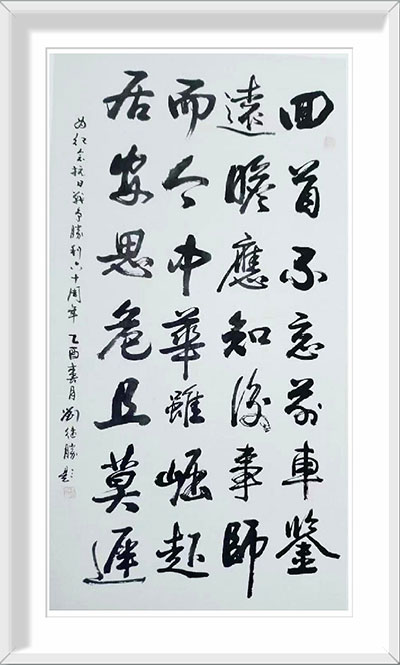 回首不忘前車鑒
遠瞻應知後事師
而今中華雖崛起
居安思危且莫遲
为纪念抗日戰争勝利六十周年 乙酉春月 劉德勝题